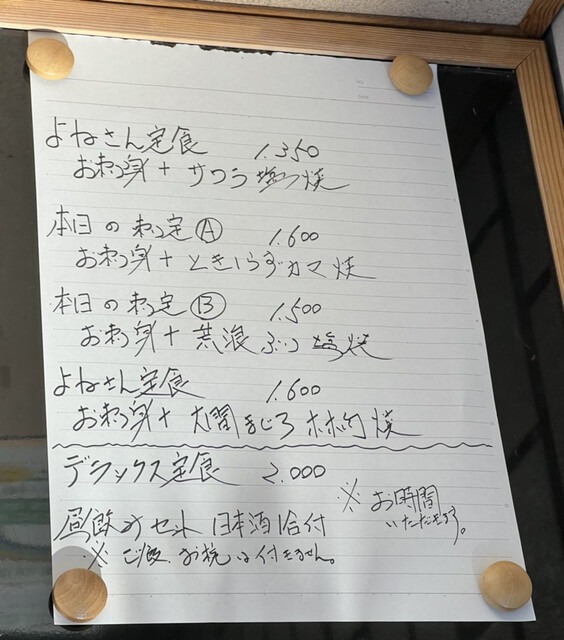 よねさん定食 1.350
お刺身 + サワラ塩焼
本日の刺定Ⓐ 1.600
お刺身 + ときしらずカマ焼
本日の刺定Ⓑ 1.500
お刺身 + 荒浪ぶり塩焼
よねさん定食 1.600
お刺身 + 大間まぐろホホ肉焼
デラックス定食 2.000
※お時間
いただきます。
昼飲みセット 日本酒1合付
※ご飯、お椀は付きません。